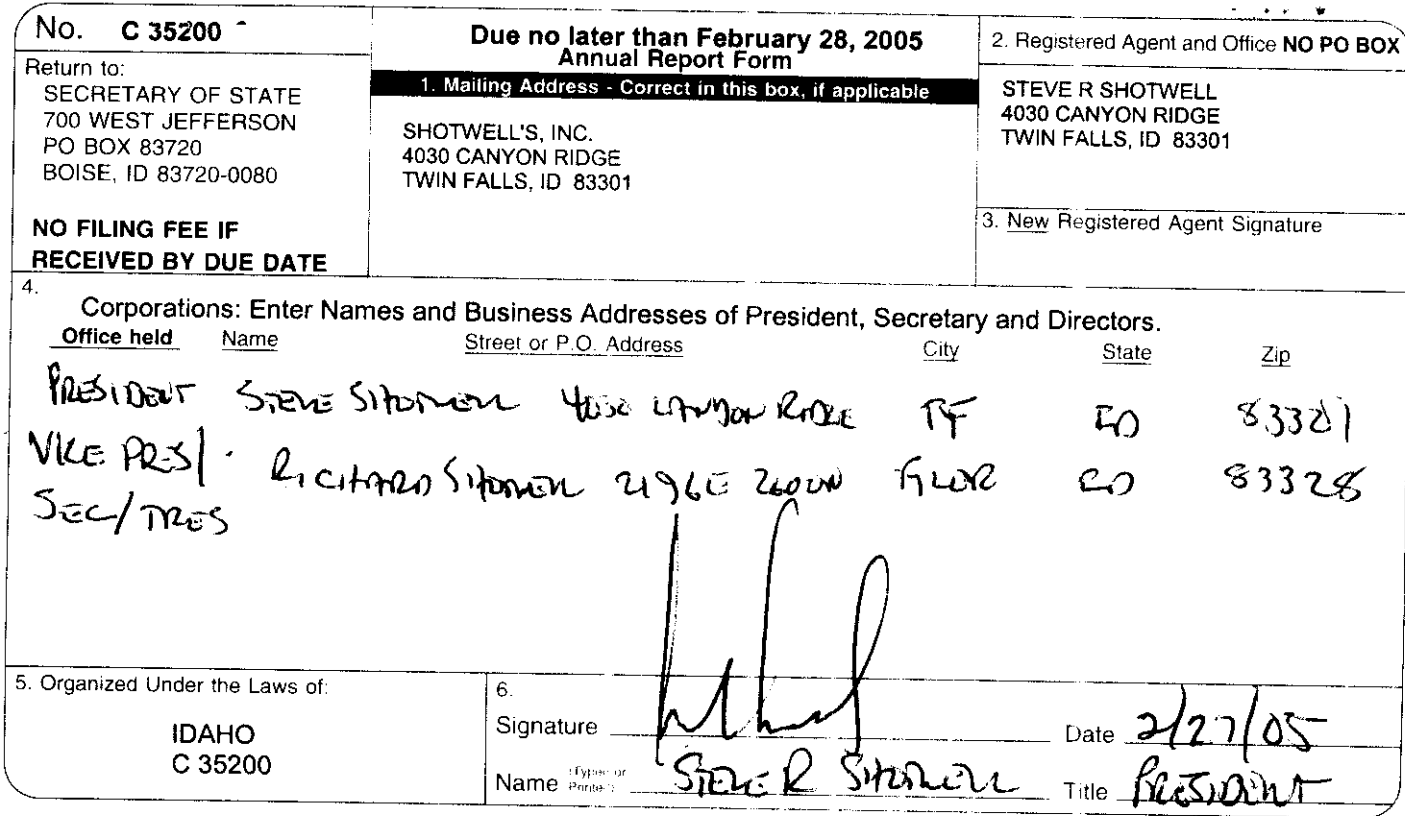 No. C 35200
Return to:
SECRETARY OF STATE
700 WEST JEFFERSON
PO BOX 83720
BOISE, ID 83720-0080
NO FILING FEE IF
RECEIVED BY DUE DATE
Due no later than February 28, 2005
Annual Report Form
1. Mailing Address - Correct in this box, if applicable
SHOTWELL'S, INC.
4030 CANYON RIDGE
TWIN FALLS, ID 83301
2. Registered Agent and Office NO PO BOX
STEVE R SHOTWELL
4030 CANYON RIDGE
TWIN FALLS, ID 83301
3. New Registered Agent Signature
4.
Corporations: Enter Names and Business Addresses of President, Secretary and Directors.
Office held Name Street or P.O. Address City State Zip
PRESIDENT STEVE SHOTWELL 4030 CANYON RIDGE TF ID 83301
VICE PRES/ RICHARD SHOTWELL 2196E 2600N FILER ID 83328
SEC/TRES
5. Organized Under the Laws of:
IDAHO
C 35200
6.
Signature
Date 2/27/05
Name (Typed or Printed) STEVE R SHOTWELL
Title PRESIDENT